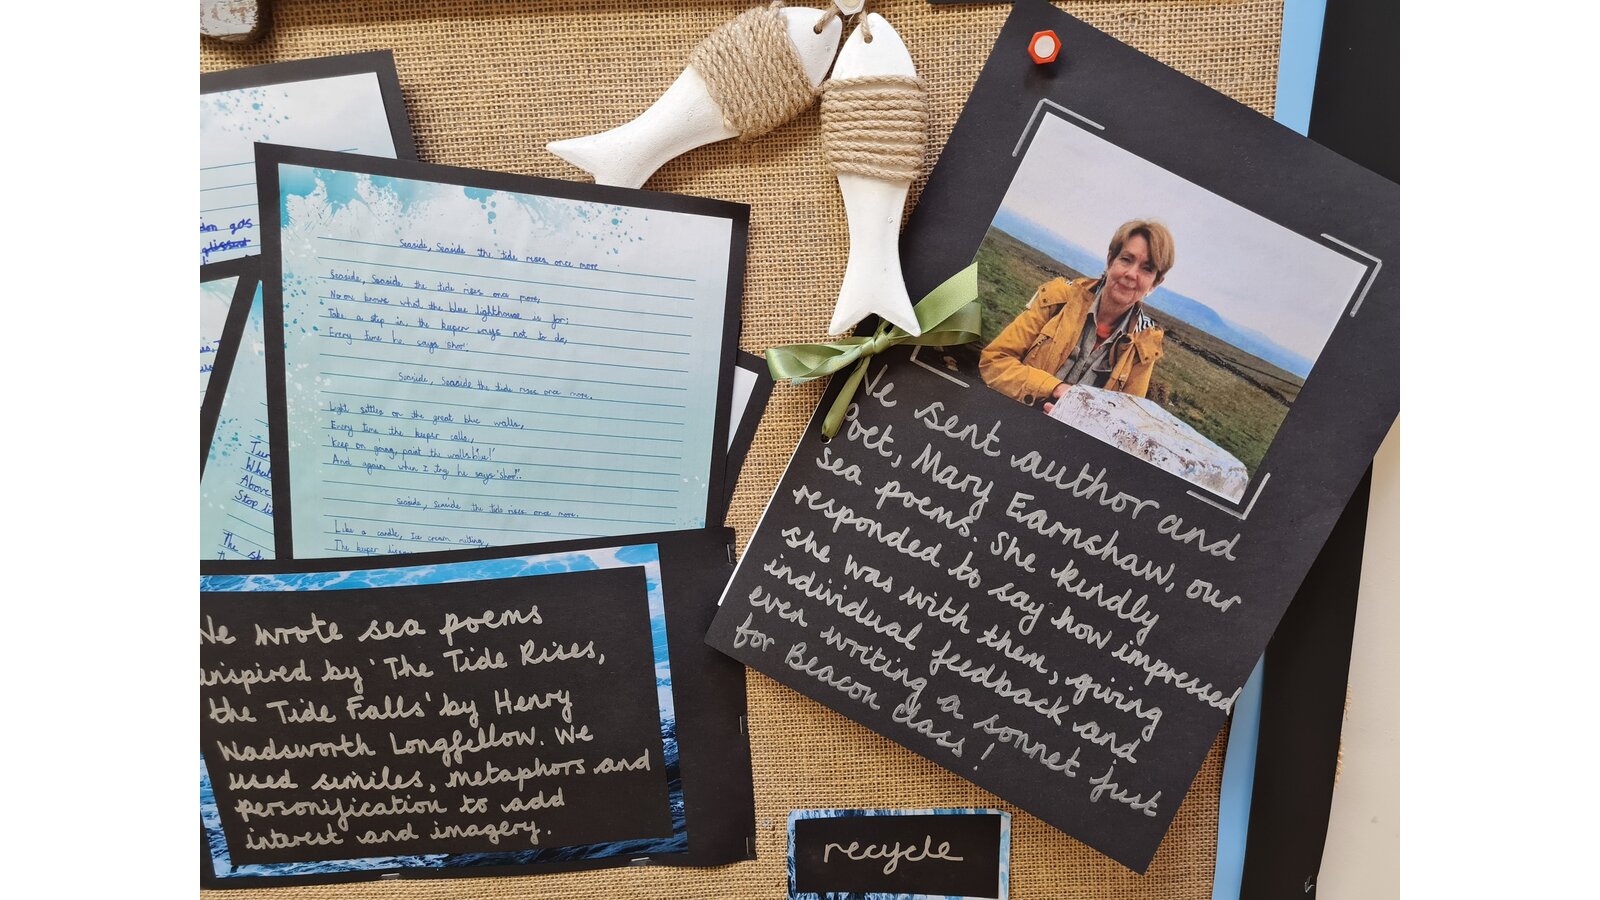 don gas
Seaside, Seaside the tide rises once more
Seaside, Seaside the tide rises once more,
No one knows what the blue lighthouse is for;
Take a step in, the keeper says not to do,
Every time he says 'Shoo!'.
Seaside, Seaside the tide rises once more,
Light settles on the great blue walls,
Every time the keeper calls,
'Keep on going, paint the walls blue!'
And again when I try he says 'Shoo!'.
Seaside, Seaside the tide rises once more.
Like a candle, Ice cream melting,
The keeper
Above
Stop
The
We wrote sea poems
inspired by 'The Tide Rises,
the Tide Falls' by Henry
Wadsworth Longfellow. We
used similes, metaphors and
personification to add
interest and imagery.
We sent author and
Poet, Mary Earnshaw, our
sea poems. She kindly
responded to say how impressed
she was with them, giving
individual feedback and
even writing a sonnet just
for Beacon Class!
recycle